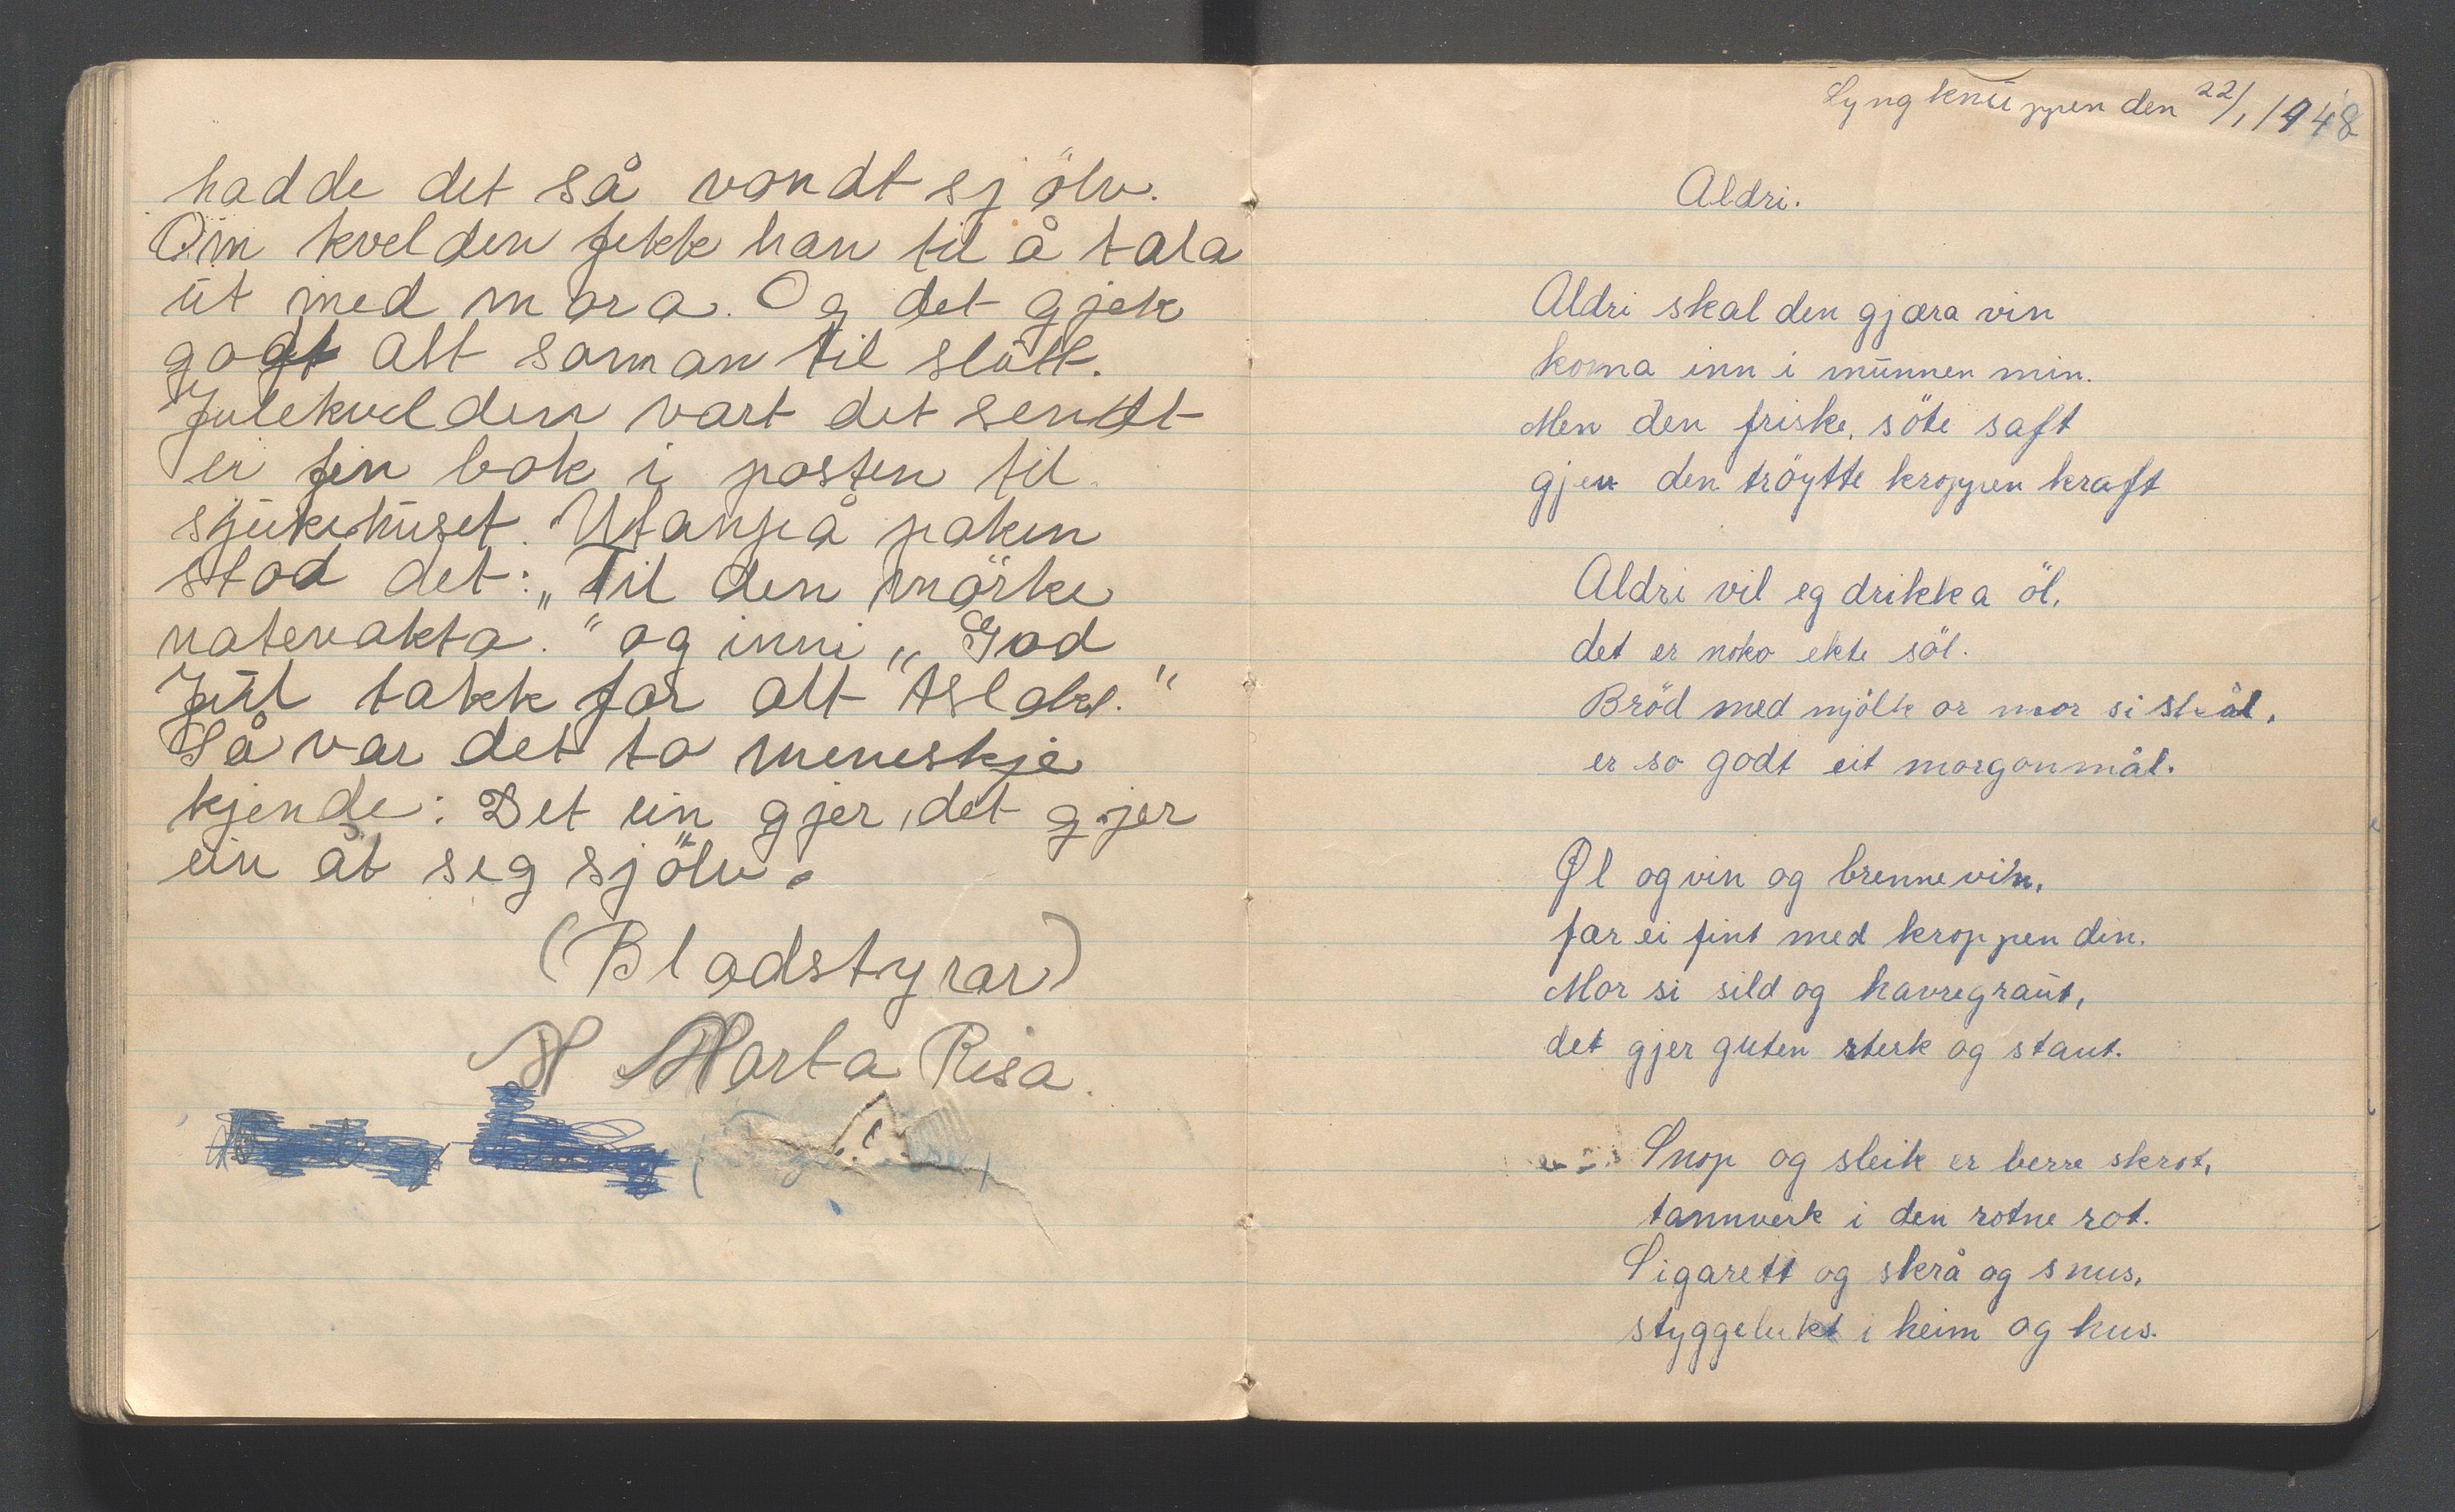 hadde det så vondt sjölv.
Om kvelden fekk han til å tala
ut med mora. Og det gjek
godt alt saman til slutt.
Julekvelden vart det sendt
ei fin bok i posten til
sjukehuset. Utanpå paken
stod det: „Til den mörke
natevakta." og inni „God
Jul takk for alt Aslak."
Så var det to meneskje
kjende: Det ein gjer, det gjer
ein åt seg sjölv.
(Bladstyrar)
N Marta Risa.
Lyngknuppen den 22/1 1948
Aldri.
Aldri skal den gjæra vin
koma inn i munnen min.
Men den friske, söte saft
gjev den tröytte kroppen kraft
Aldri vil eg drikka öl,
det er noko ekte söl.
Bröd med mjölk or mor si skål,
er so godt eit morgonmål.
Øl og vin og brennevin,
far ei fint med kroppen din.
Mor si sild og havregraut,
det gjer guten sterk og staut.
Snop og sleik er berre skrot,
tannverk i den rotne rot.
Sigarett og skrå og snus,
styggelukt i heim og hus.